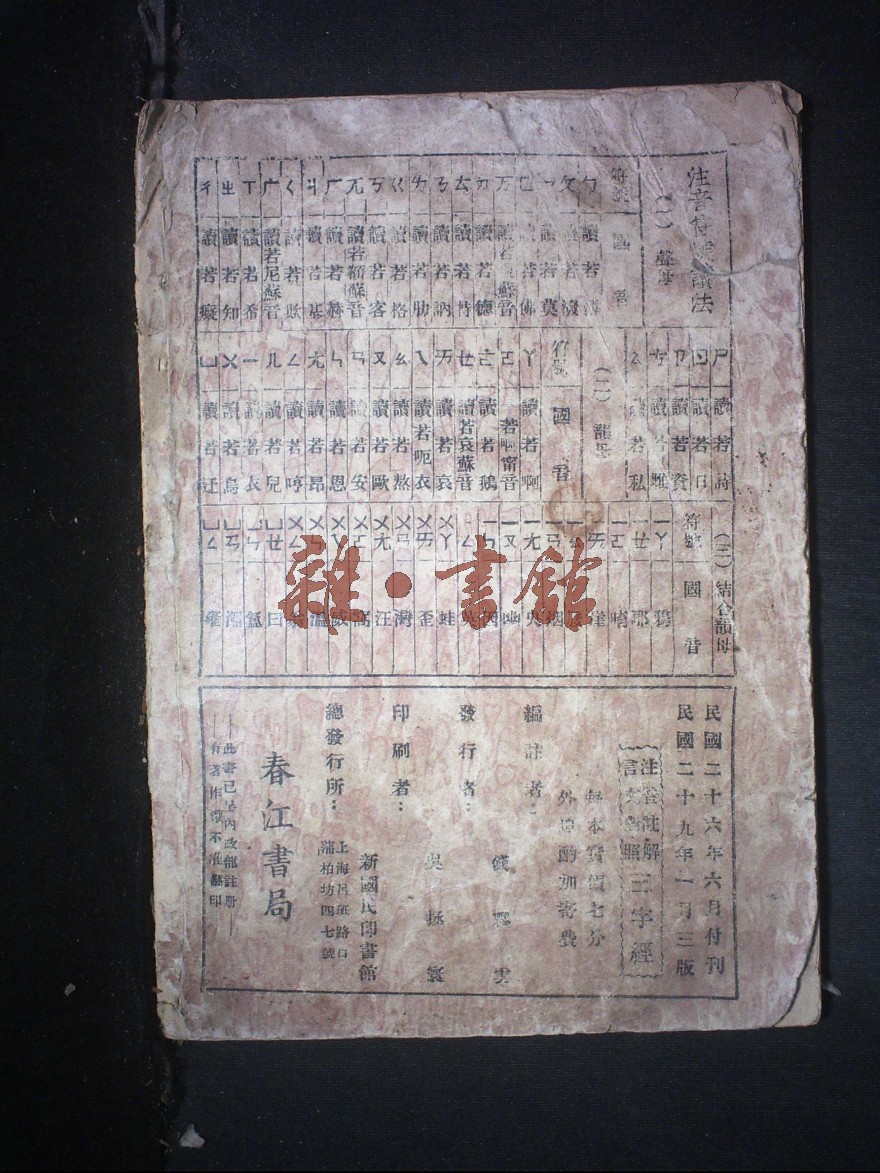 注音符號讀法
(一)聲母
符號 國音
ㄅ 讀若
ㄆ 讀若潑
ㄇ 讀若莫
ㄈ 讀若佛
ㄪ 讀若 蘇音
ㄉ 讀若德
ㄊ 讀若特
ㄋ 讀若訥
ㄌ 讀若肋
ㄍ 讀若格
ㄎ 讀若客
ㄫ 讀若額蘇音
ㄏ 讀若赫
ㄐ 讀若基
ㄑ 讀若欺
ㄬ 讀若尼蘇音
ㄒ 讀若希
ㄓ 讀若知
ㄔ 讀若癡
ㄕ 讀若詩
ㄖ 讀若日
ㄗ 讀若資
ㄘ 讀若雌
ㄙ 讀若私
(二)韻母
符號 國音
ㄚ 讀若啊
ㄛ 若 甯音
ㄜ 讀若鵝
ㄝ 讀若哀蘇音
ㄞ 讀若哀
ㄟ 讀若呃衣
ㄠ 讀若熬
ㄡ 讀若歐
ㄢ 讀若安
ㄣ 讀若恩
ㄤ 讀若昂
ㄥ 讀若哼
ㄦ 讀若兒
ㄧ 讀若衣
ㄨ 讀若烏
ㄩ 讀若迂
(三)結合韻母
符號 國音
ㄧㄚ 鴉
ㄧㄝ 耶
ㄧㄛ 唷
ㄧㄞ 崖
ㄧㄠ
ㄧㄢ 烟
ㄧㄡ 幽
ㄧㄤ 央
ㄨㄚ 蛙
ㄨㄞ 歪
ㄨㄢ 灣
ㄨㄤ 汪
ㄨㄛ 窩
ㄨㄟ 威
ㄨㄣ 溫
ㄨㄥ 翁
ㄩㄝ 曰
ㄩㄣ 氳
ㄩㄢ 淵
ㄩㄥ 雍
民國二十六年六月付刊
民國二十九年一月三版
注音註解
言文對照
三字經
每本實價七分
外埠酌加寄費
編註者:
錢 雲
發行者:
吳拯寰
印刷者:
新國民印書館
總發行所:
上海呂班路口
蒲柏坊四七號
春江書局
此書已呈內政部註册
有著作權不准翻印
雜·書館